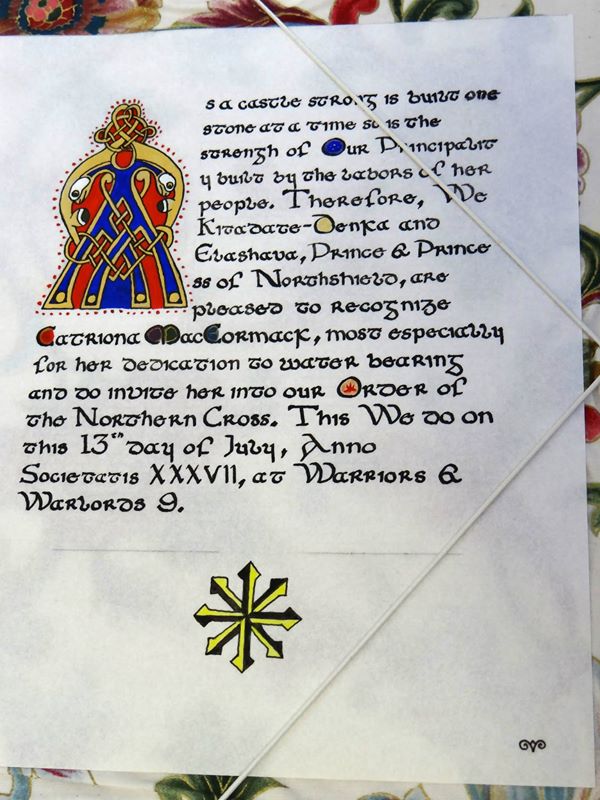 As a castle strong is built one
stone at a time so is the
strengh of Our Principalit
y built by the labors of her
people. Therefore, We
Kitadate-Denka and
Elashava, Prince & Prince
ss of Northshield, are
pleased to recognize
Catriona MacCormack, most especially
for her dedication to water bearing
and do invite her into our Order of
the Northern Cross. This We do on
this 13th day of July, Anno
Societatis XXXVII, at Warriors &
Warlords 9.